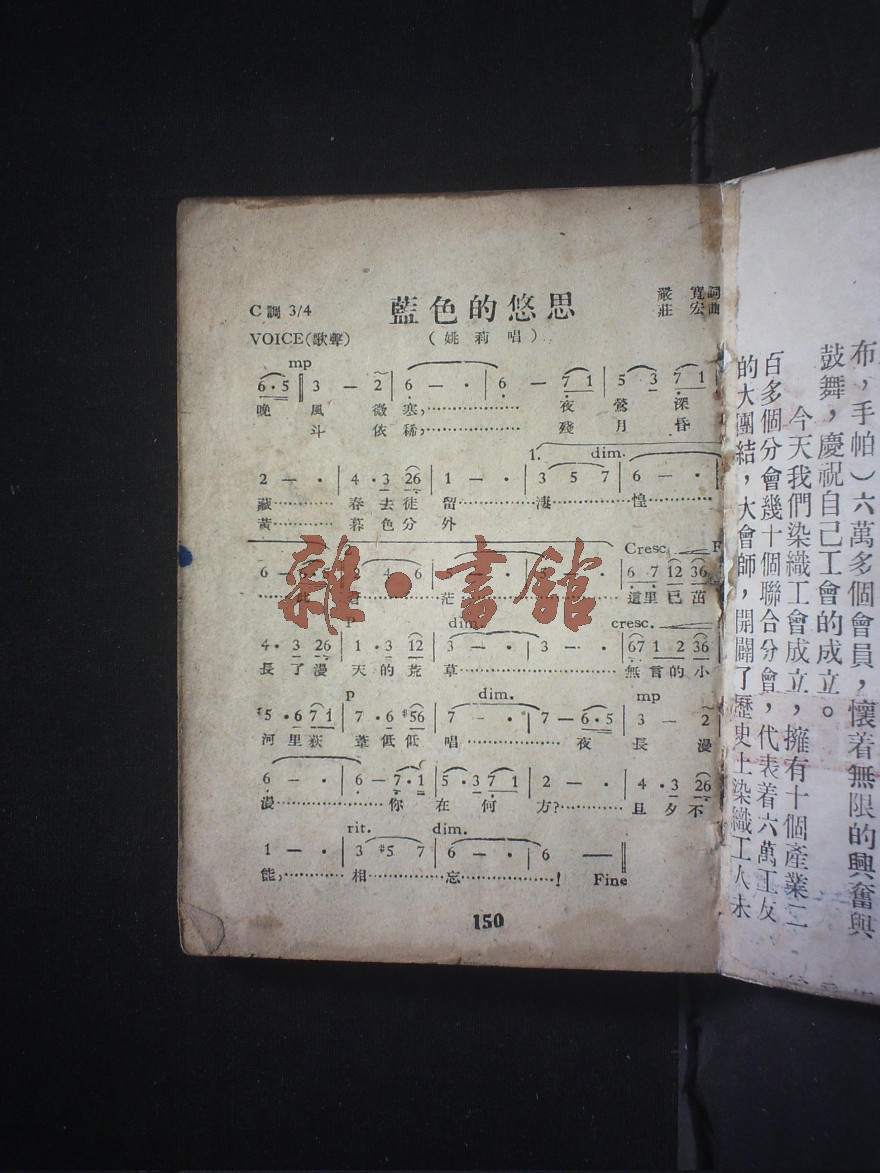 C調 3/4
藍色的悠思
嚴寬詞
莊宏曲
VOICE(歌聲)
(姚莉唱)
mp
6·5 3 — 2 6 — · 6 — 7 1 5 3 7 1
晚 風 微 寒,………… 夜 鶯 深
斗 依 稀,………… 殘 月 昏
1. dim.
2 — · 4 · 3 26 1 — · 3 5 7 6 — ·
藏……… 春 去 徒 留……… 淒……… 惶………
黃……… 暮 色 分 外
Cresc.
6 · 7 12 36
茫……… 這里已茁
雜·書館
P dim. cresc.
4 · 3 26 1 · 3 12 3 — · 3 — · 67 1 2 36
長了漫 天的荒 草………… 無言的小
p dim. mp
#5 · 6 7 1 7 · 6 #56 7 — · 7 — 6·5 3 — 2
河里荻 葦低低 唱………… 夜 長 漫
6 — · 6 — 7·1 5 · 3 7 1 2 — · 4 · 3 26
漫………… 你 在 何 方?……… 旦 夕 不
rit. dim.
1 — · 3 #5 7 6 — · 6 —
能,……… 相……… 忘…………! Fine
150
布,手帕)六萬多個會員,懷着無限的興奮與
鼓舞,慶祝自己工會的成立。
今天我們染織工會成立,擁有十個產業二
百多個分會幾十個聯合分會,代表着六萬工友
的大團結,大會師,開闢了歷史上染織工人未